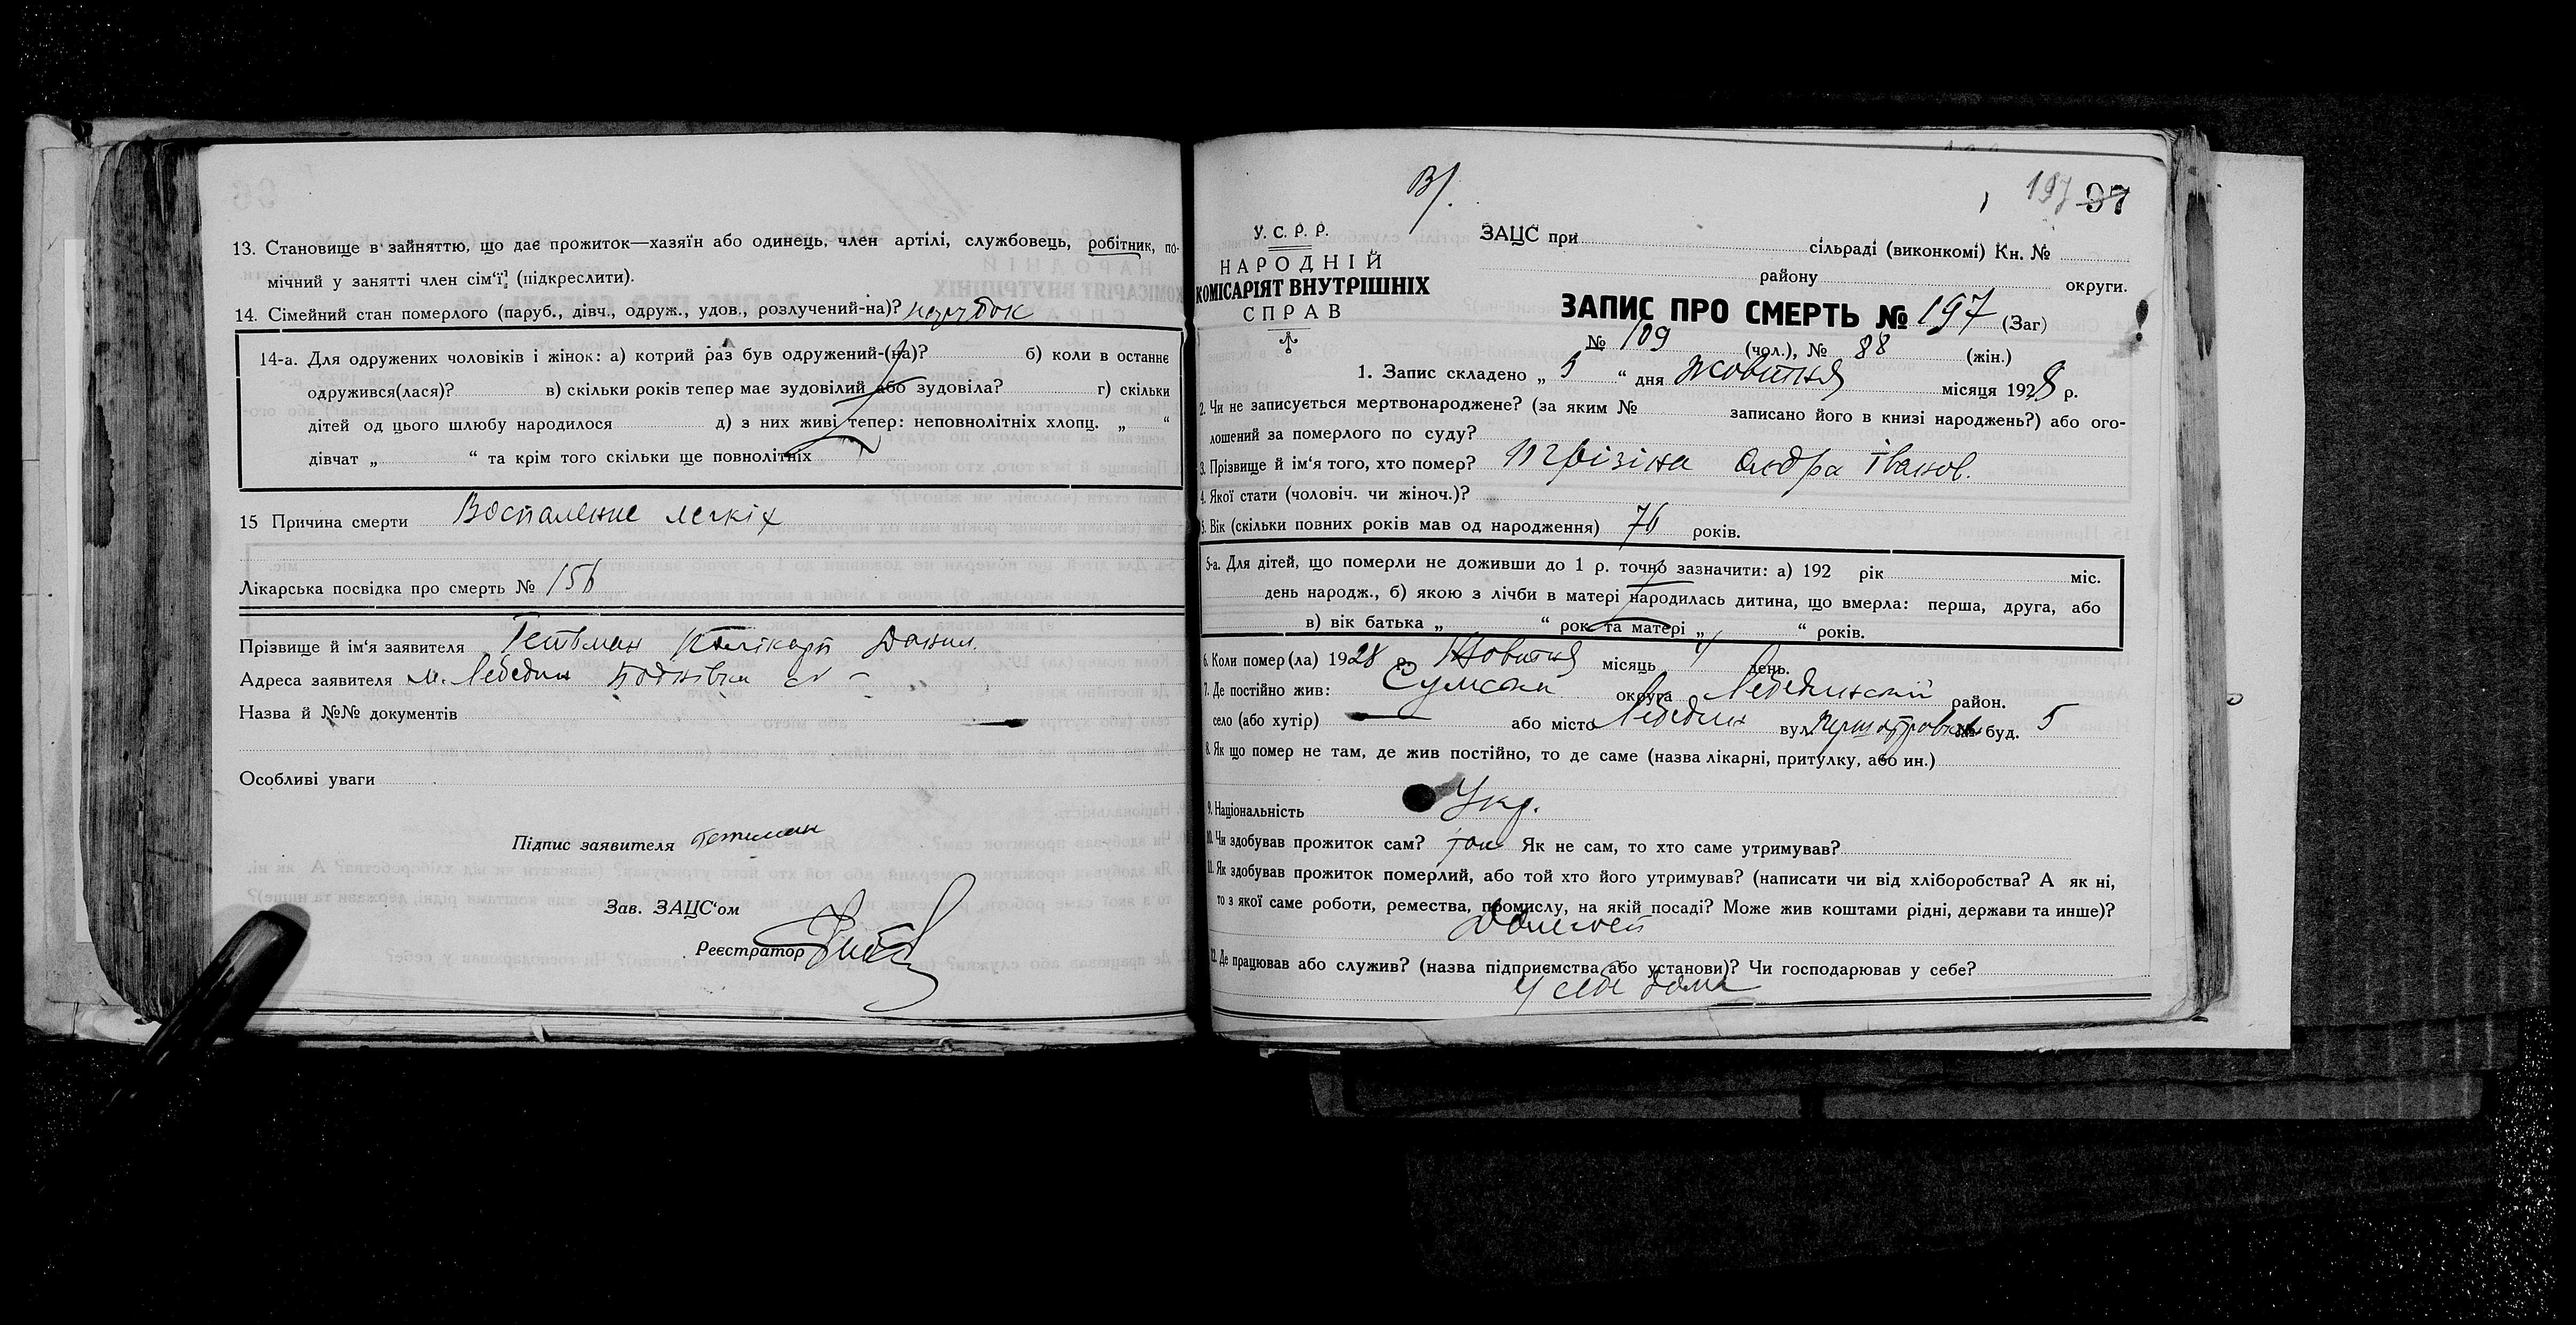 13. Становище в зайняттю, що дає прожиток—хазяїн або одинець, член артілі, службовець, робітник, по-
мічний у занятті член сім'ї (підкреслити).
14. Сімейний стан померлого (паруб., дівч., одруж., удов., розлучений-на)? парубок
14-а. Для одружених чоловіків і жінок: а) котрий раз був одружений-(на)? б) коли в останнє
одружився(лася)? в) скільки років тепер має зудовілий або зудовіла? г) скільки
дітей од цього шлюбу народилося д) з них живі тепер: неповнолітніх хлопц. „ “
дівчат „ “ та крім того скільки ще повнолітніх
15 Причина смерти Воспаление легкіх
Лікарська посвідка про смерть № 156
Прізвище й ім'я заявителя Гетьман Данил.
Адреса заявителя м. Лебедин
Назва й №№ документів
Особливі уваги
Підпис заявителя Гетьман
Зав. ЗАЦС'ом
Реєстратор
В/.
197 97
У. С. Р. Р.
НАРОДНІЙ
КОМІСАРІЯТ ВНУТРІШНІХ
СПРАВ
ЗАЦС при сільраді (виконкомі) Кн. №
району округи.
ЗАПИС ПРО СМЕРТЬ № 197 (Заг)
№ 109 (чол.), № 88 (жін.)
1. Запис складено „ 5 “ дня Жовтня місяця 1928 р.
2. Чи не записується мертвонароджене? (за яким № записано його в книзі народжень?) або ого-
лошений за померлого по суду?
3. Прізвище й ім'я того, хто помер? Іванов.
4. Якої стати (чоловіч. чи жіноч.)?
5. Вік (скільки повних років мав од народження) 76 років.
5-а. Для дітей, що померли не доживши до 1 р. точно зазначити: а) 192 рік міс.
день народж., б) якою з лічби в матері народилась дитина, що вмерла: перша, друга, або
в) вік батька „ “ рок. та матері „ “ років.
6. Коли помер(ла) 1928 р. Жовтня місяць 4 день.
7. Де постійно жив: Сумска округа Лебединский район.
село (або хутір) — або місто Лебедин вул. буд. 5
8. Як що помер не там, де жив постійно, то де саме (назва лікарні, притулку, або ин.)
9. Національність Укр.
10. Чи здобував прожиток сам? так Як не сам, то хто саме утримував?
11. Як здобував прожиток померлий, або той хто його утримував? (написати чи від хліборобства? А як ні,
то з якої саме роботи, ремества, промислу, на якій посаді? Може жив коштами рідні, держави та инше)?
12. Де працював або служив? (назва підприємства або установи)? Чи господарював у себе?
У себе дома